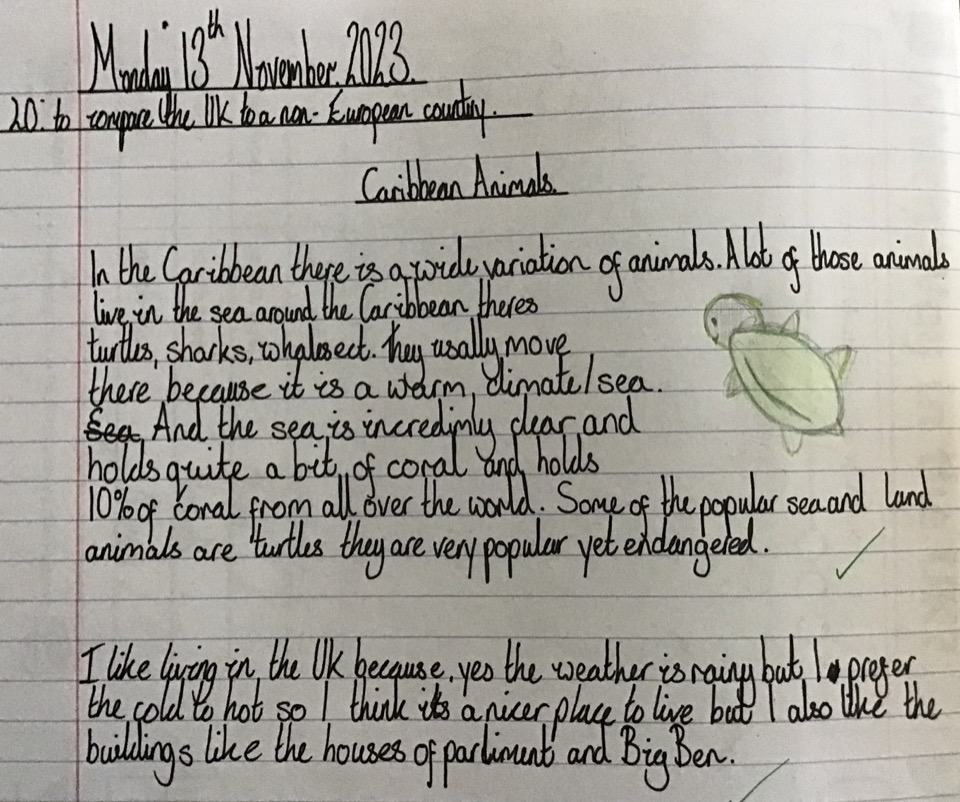 Monday 13th November 2023.
LO: to compare the UK to a non-European country.
Caribbean Animals.
In the Caribbean there is a wide variation of animals. A lot of those animals
live in the sea around the Caribbean theres
turtles, sharks, whales ect. they usally move
there because it is a warm climate/sea.
Sea And the sea is incredimly clear and
holds quite a bit of coral and holds
10% of coral from all over the world. Some of the popular sea and land
animals are turtles they are very popular yet endangered.
I like living in the UK because, yes the weather is rainy but I prefer
the cold to hot so I think its a nicer place to live but I also like the
buildings like the houses of parliment and Big Ben.